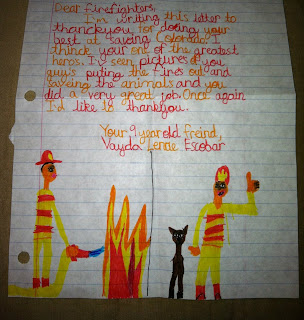 Dear firefighters,
I'm writing this letter to
thanckeyou for doing your
best at saveing Colorado. I
thinck your one of the greatest
heros. I'v seen pictures of you
guy's puting the fires out and
saveing the animals and you
did a very great job. Once again
I'd like to thankeyou.
Your 9 year old freind,
Vayda Lenae Escobar